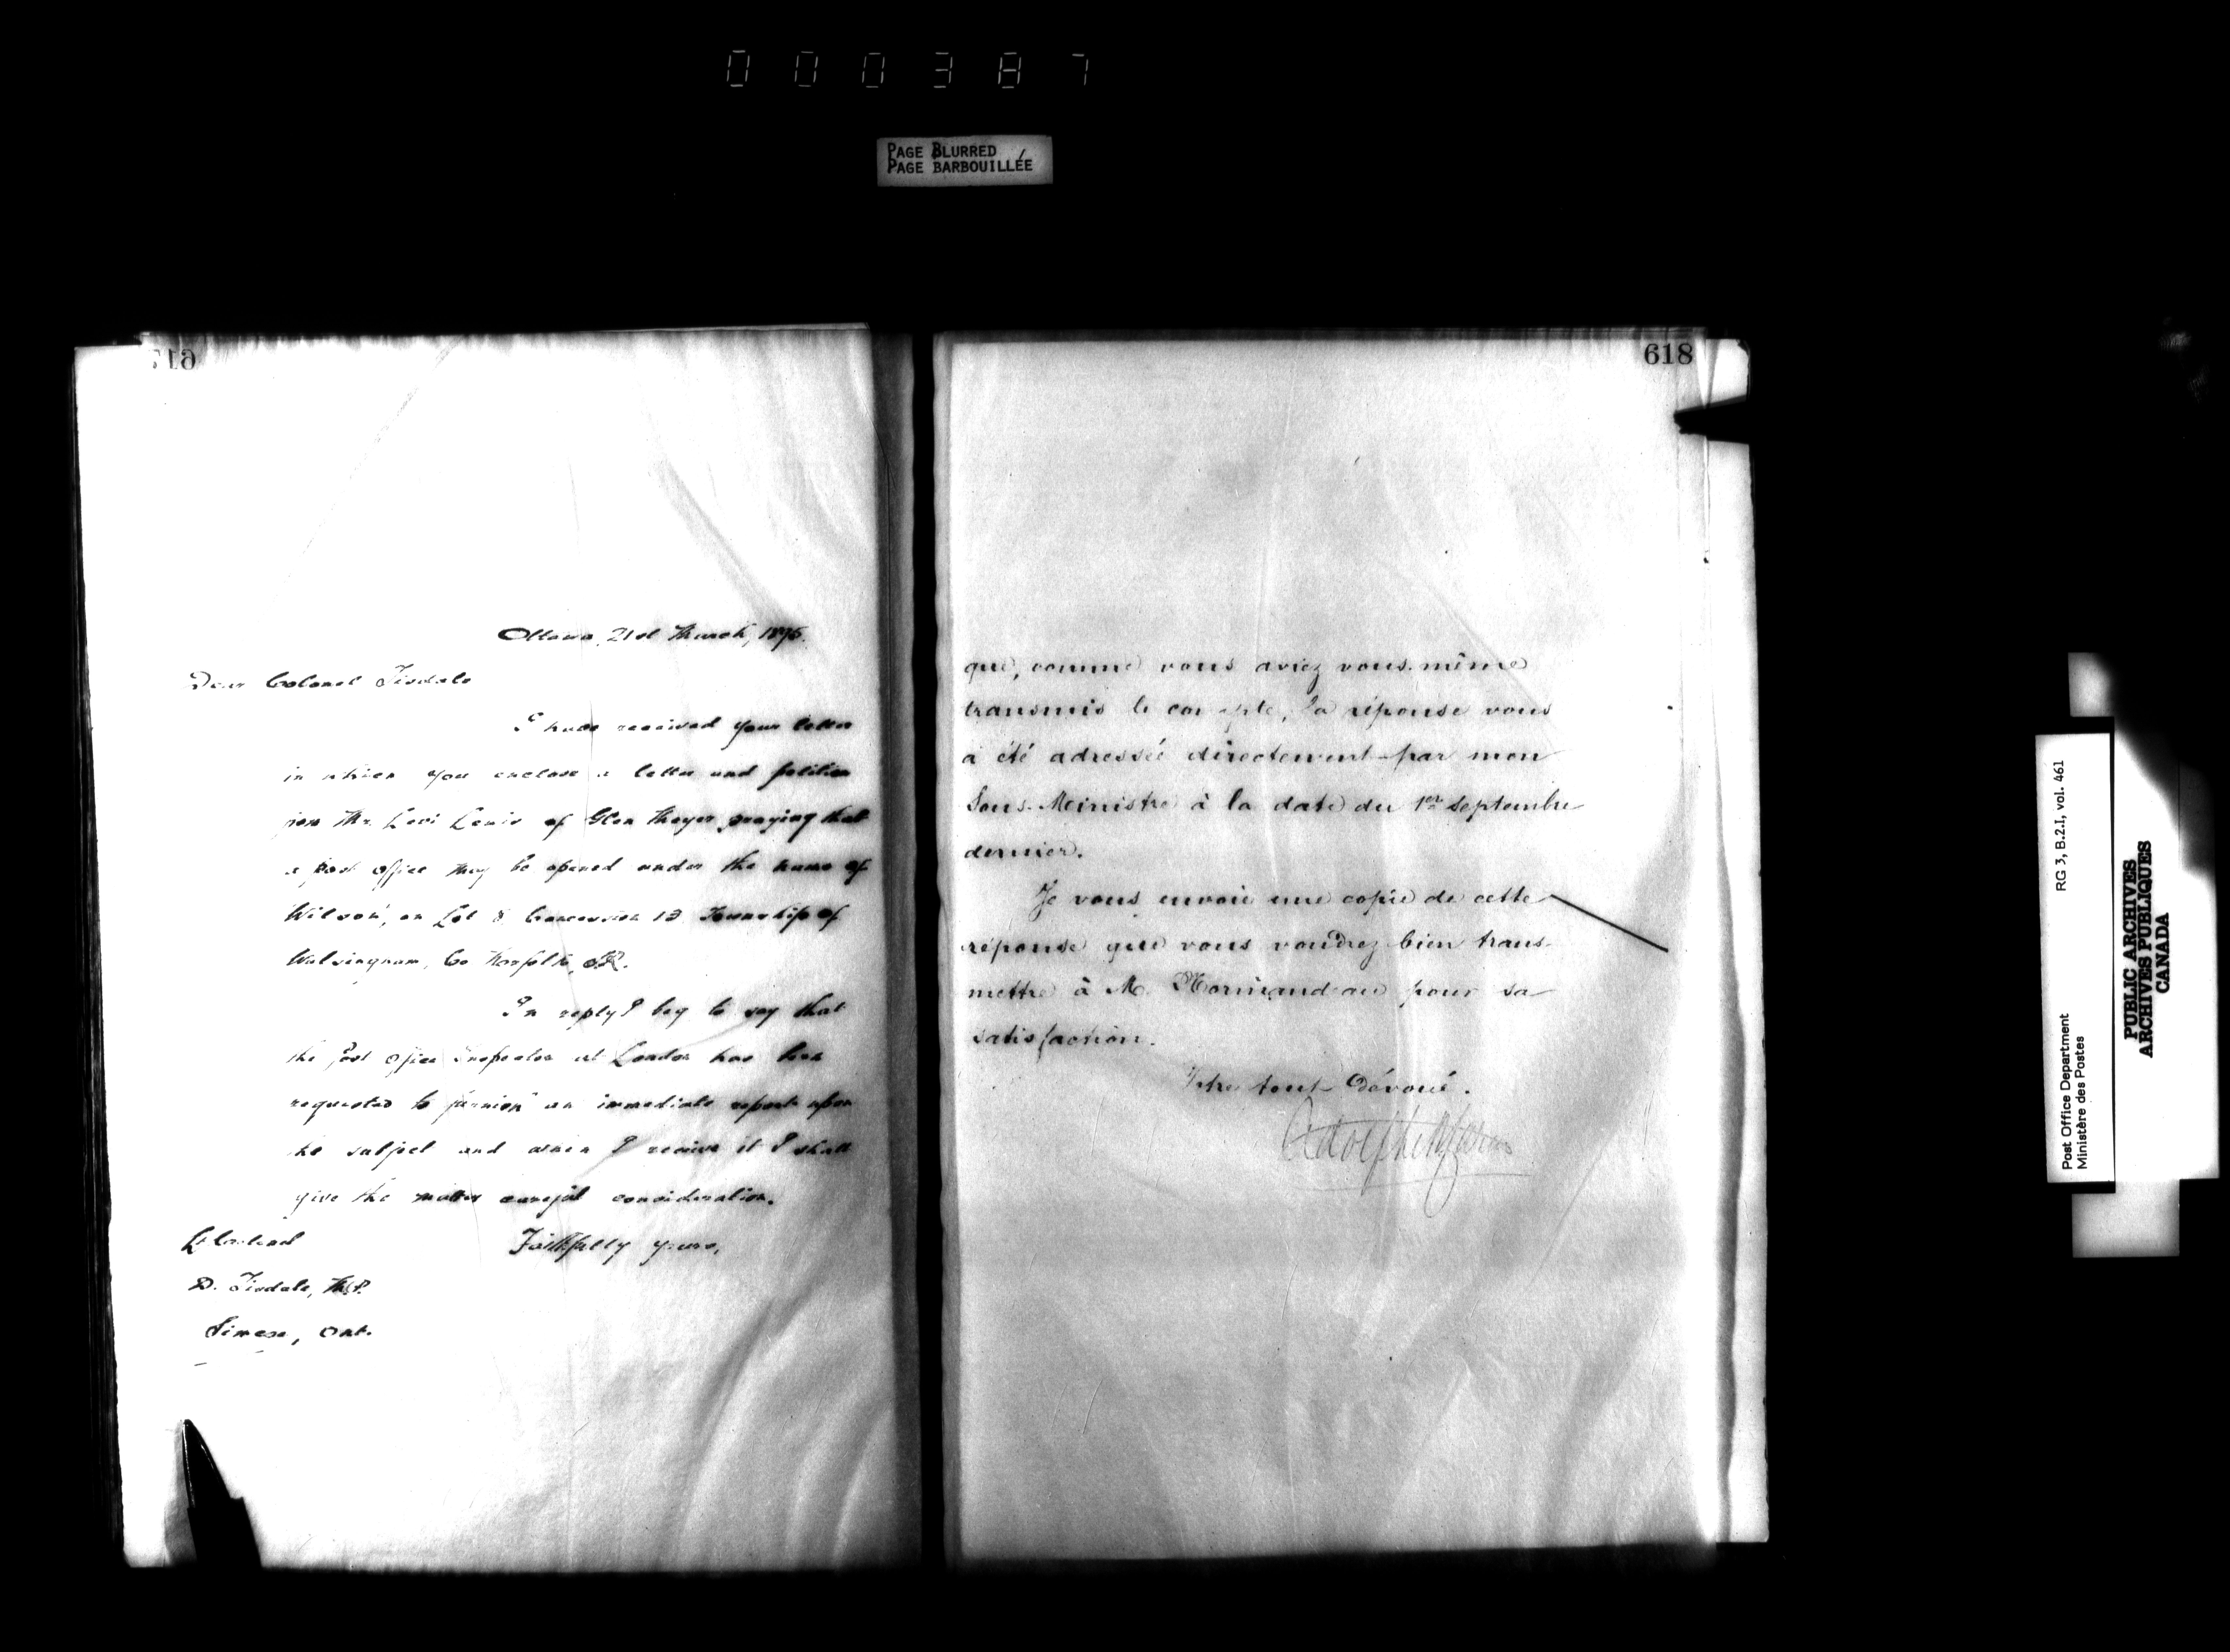 000387
PAGE BLURRED
PAGE BARBOUILLÉE
617
Ottawa, 21st March, 1895.
Dear Colonel Tisdale
I have received your letter
in which you enclose a letter and petition
from Mr. Levi Lewis of Glen Meyer praying that
a post office may be opened under the name of
"Wilson", on Lot 8 Concession 13 Township of
Walsingham, Co Norfolk,
In reply I beg to say that
the Post Office Inspector at London has been
requested to furnish an immediate report upon
the subject and when I receive it I shall
give the matter careful consideration.
Faithfully yours,
Lt Colonel
D. Tisdale, M.P.
Simcoe, Ont.
618
que, comme vous aviez vous-même
transmis le compte, la réponse vous
a été adressée directement par mon
Sous-Ministre à la date du 1er Septembre
dernier.
Je vous envoie une copie de cette
réponse que vous voudrez bien trans-
mettre à M. Normandeau pour sa
satisfaction.
Votre tout Dévoué.
Adolphe P. Caron
RG 3, B.2.I, vol. 461
Post Office Department
Ministère des Postes
PUBLIC ARCHIVES
ARCHIVES PUBLIQUES
CANADA